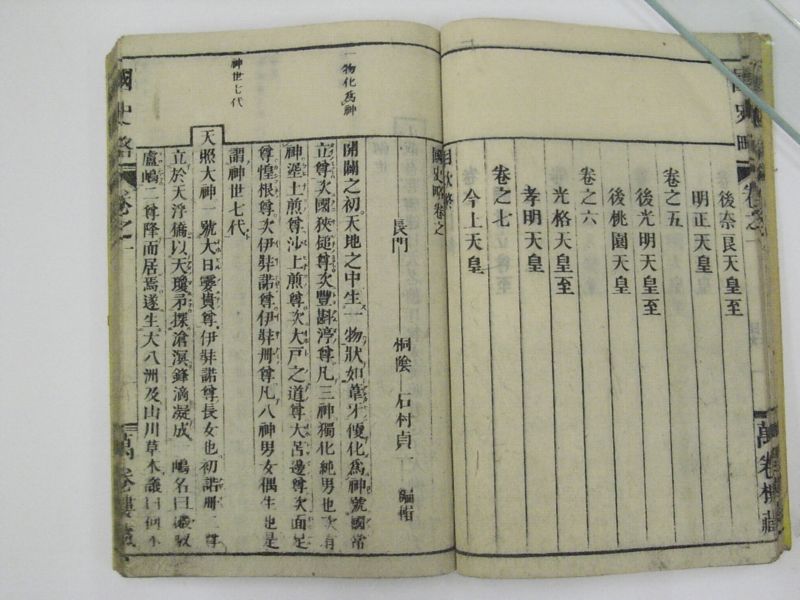 國史略
卷之一
後奈良天皇至
明正天皇
卷之五
後光明天皇至
後桃園天皇
卷之六
光格天皇至
孝明天皇
卷之七
今上天皇
目次終
萬卷樓藏
國史略卷之一
長門 桐陰 石村貞一 編輯
一物化為神
開闢之初天地之中生一物狀如葦牙便化為神號國常
立尊次國狹槌尊次豐斟渟尊凡三神獨化純男也次有
神埿土煑尊沙土煑尊次大戸之道尊大苫邊尊次面足
尊惶根尊次伊弉諾尊伊弉册尊凡八神男女偶生也是
神世七代
謂神世七代
天照大神一號大日孁貴尊伊弉諾尊長女也初諾册二尊
立於天浮橋以天瓊矛探滄溟鋒滴凝成一嶋名曰磤馭
盧嶋二尊降而居焉遂生大八洲及山川草木
國史略
卷之一
萬卷樓藏